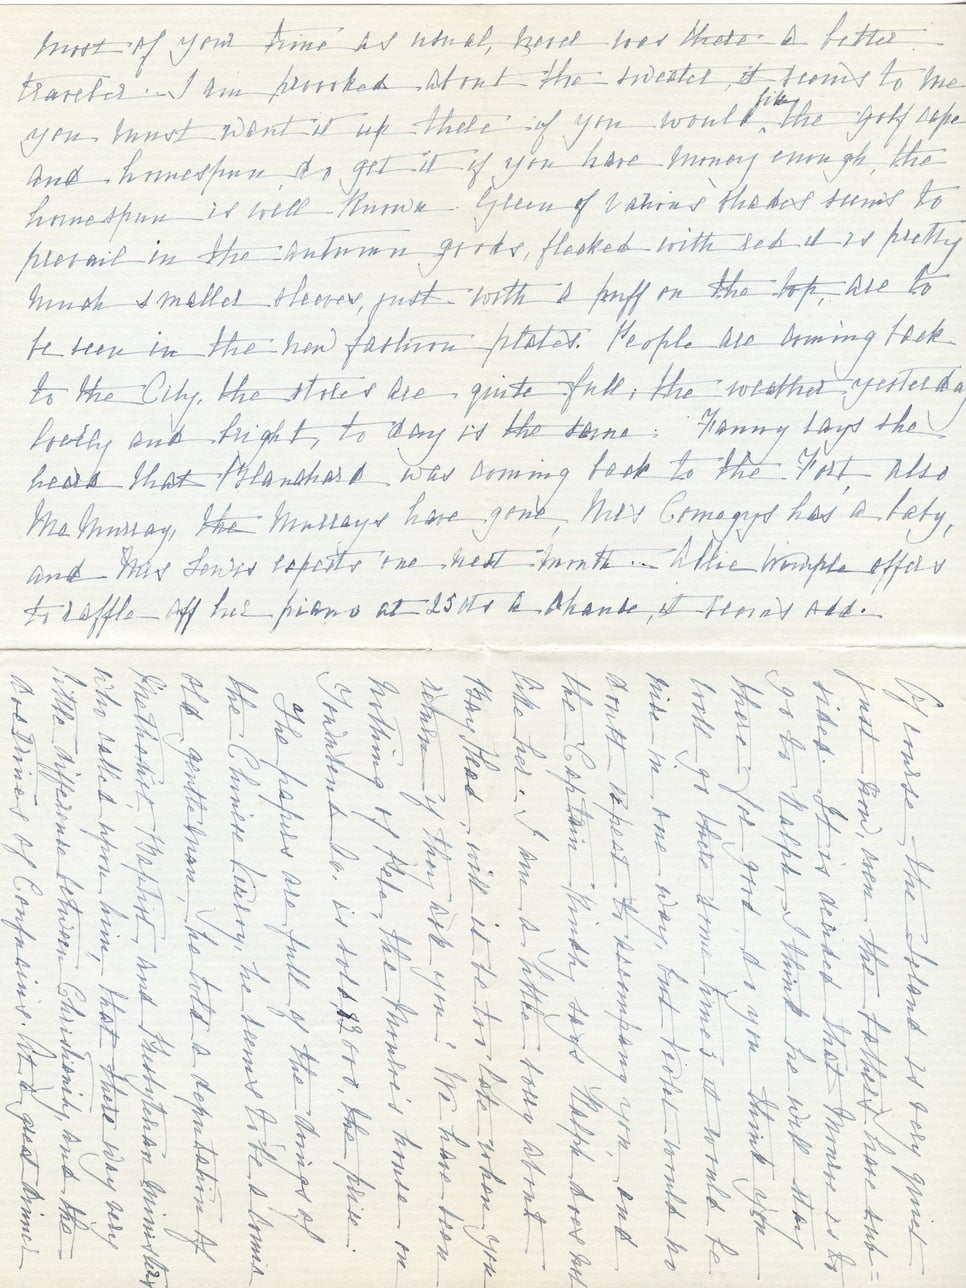 most of your time as usual, never was there a better
traveler. I am provoked about the sweater, it seems to me
you must want it up there if you would like the golf cape
and homespun, do get it if you have money enough, the
homespun is well known. Green of various shades seems to
prevail in the autumn goods, flecked with red it is pretty
much smaller sleeves, just with a puff on the top, are to
be seen in the new fashion plates. People are coming back
to the City, the stores are quite full, the weather yesterday
lovely and bright, to day is the same. Fanny says she
heard that Blanchard was coming back to the Fort, also
McMurray, the Murrays have gone, Mrs Comegys has a baby,
and Mrs Lewis expects one next month. Allie Wimple offers
to raffle off her piano at 25 cts a chance, it seems odd.
Of course, the Island is very quiet
just now, even the bathers have sub-
sided. It is decided that Monroe is to
go to Ralph, I think he will stay
there for good, do you think you
will go there some time, it would be
nice in one way, but Violet would no
doubt expect to accompany you and
the Captain kindly says Ralph does not
like her. I am a little sorry about
will it be too late when you
return if they ask you. We have seen
nothing of the house on
is sold $3000, the price.
The papers are full of the doings of
the Chinese Envoy, he seems to be a
old gentleman, he told a deputation of
Methodist, Baptist, and Presbyterian Ministers
who called upon him, that there was very
little difference between Christianity and the
doctrines of Confucius. At a great dinner